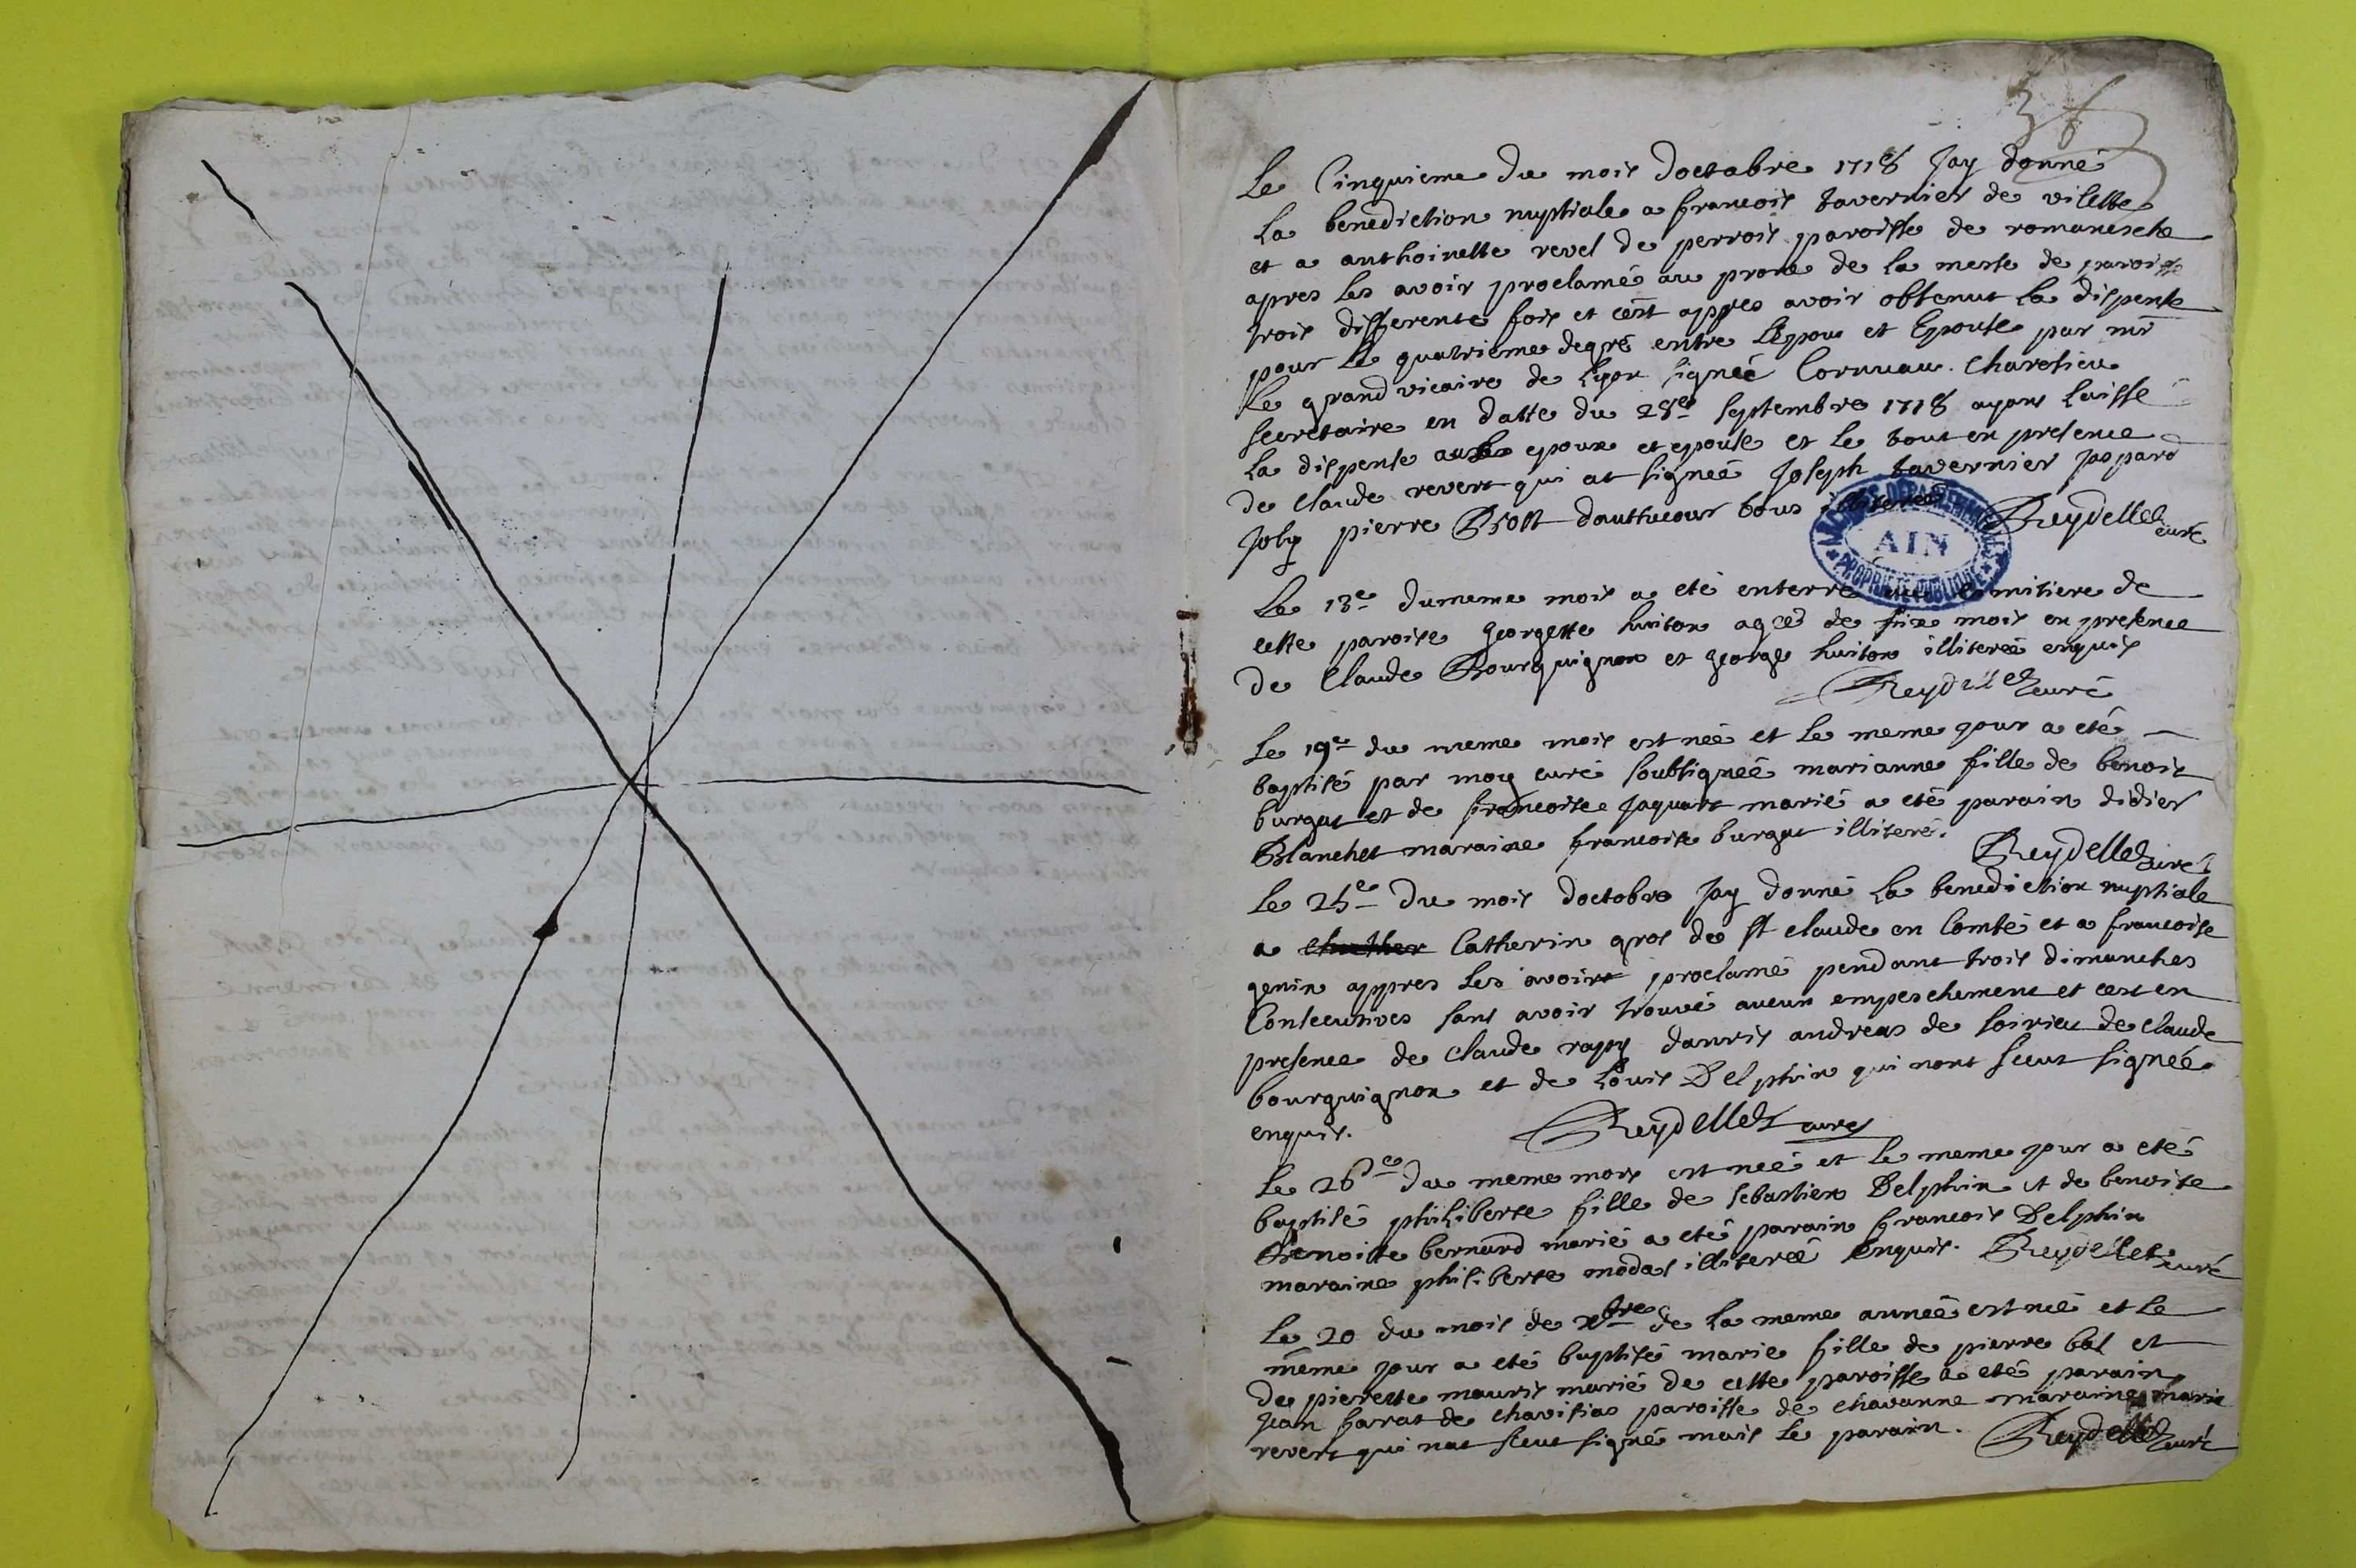 36
Le Cinquieme du mois doctobre 1718 Jay donné
La benediction nuptiale a francois tavernier de vilette
et a anthoinette revel de perrois paroisse de romanesche
apres les avoir proclamé au prone de la messe de paroisse
trois differente fois et cest appres avoir obtenut la dispense
pour le quatrieme degré entre Lepoux et Epouse par mr
Le grand vicaire de Lyon signeé Cornuau. Charesieu
secretaire en datte du 28e septembre 1718 ayant laissé
La dispense aux epoux et epouse et le tout en presence
de claude revert qui at signeé Joseph tavernier
Joly pierre dauthecour tous illitereé Reydellet curé
ARCHIVES DEPARTEMENTALES
AIN
* PROPRIETE PUBLIQUE *
Le 13e dumeme mois a eté enterré au cemitiere de
cette paroise georgette huiton ageé de six mois en presence
de Claude Bourguignon et george huiton illitereé enquis
Reydellet curé
Le 19e du meme mois est neé et le meme jour a eté
baptisé par moy curé soubsigneé marianne fille de benoit
burgat et de francoise Jaquart marié a eté parain didier
Blanchet maraine francoise burgat illiteré.
Reydellet curé
Le 25e du mois doctobre Jay donné La benediction nuptiale
a Catherin gros de st claude en Comté et a francoise
genin appres les avoir proclamé pendant trois dimanches
Consecutives sans avoir trouvé aucun empeschement et cest en
presence de claude rapy danris andreas de soirieu de claude
bourguignon et de Louis Delphin qui nont sceut signeé
enquis. Reydellet curé
Le 26e du meme mois est neé et le meme jour a eté
baptisé philiberte fille de sebastien Delphin et de benoite
Benoitte bernard marié a eté parain francois Delphin
maraine philiberte modas illitereé enquis. Reydellet curé
Le 20 du mois de xbre de la meme anneé est neé et le
même jour a eté baptisé marie fille de pierre bal et
de pierette mauris marié de cette paroisse a eté parain
Jean farat de chavisias paroisse de chavanne maraine marie
revert qui nat sceut signé mais le parain. Reydellet curé